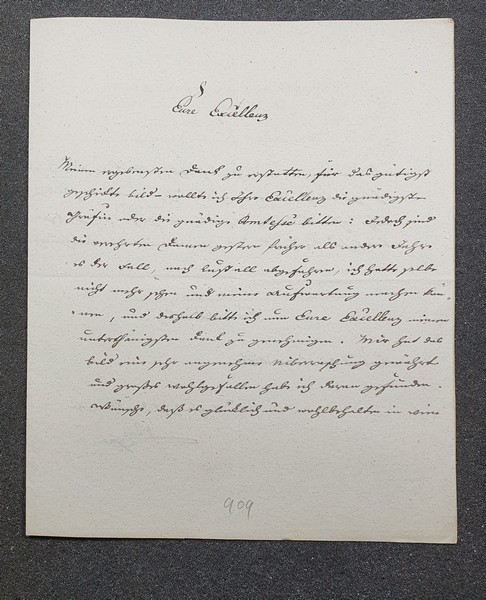 Eure Excellenz
Meinen ergebensten Dank zu erstatten, für das gütigst
geschickte Bild wollte ich Ihre Excellenz die gnädigste
Gräfin oder die gnädige Comtesse bitten: Jedoch sind
die verehrten Damen gestern früher als andere Jahre
es der Fall, nach abgefahren, ich hatte selbe
nicht mehr sehen und meine Aufwartung machen kön-
nen, und deshalb bitte ich nun Eure Excellenz meinen
unterthänigsten Dank zu genehmigen. Mir hat das
Bild eine sehr angenehme Überraschung gewährt
und großes Wohlgefallen habe ich daran gefunden.
Wünsche, daß es glücklich und wohlbehalten in Wien
909